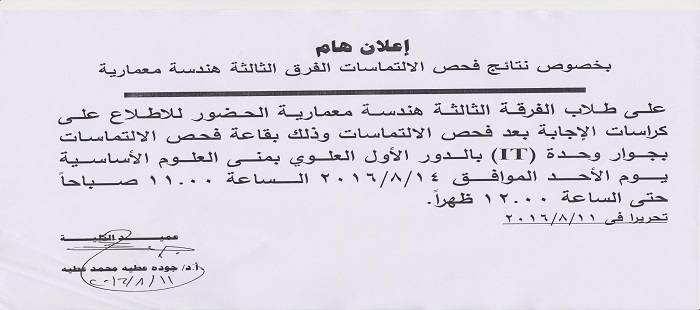 إعلان هام
بخصوص نتائج فحص الالتماسات الفرق الثالثة هندسة معمارية
على طلاب الفرقة الثالثة هندسة معمارية الحضور للاطلاع على
كراسات الإجابة بعد فحص الالتماسات وذلك بقاعة فحص الالتماسات
بجوار وحدة (IT) بالدور الأول العلوي بمنى العلوم الأساسية
يوم الأحد الموافق ٢٠١٦/٨/١٤ الساعة ١١.٠٠ صباحاً
حتى الساعة ١٢.٠٠ ظهراً.
تحريرا فى ٢٠١٦/٨/١١
عميد الكلية
أ.د/ جوده عطيه محمد عطيه
٢٠١٦/٨/١١